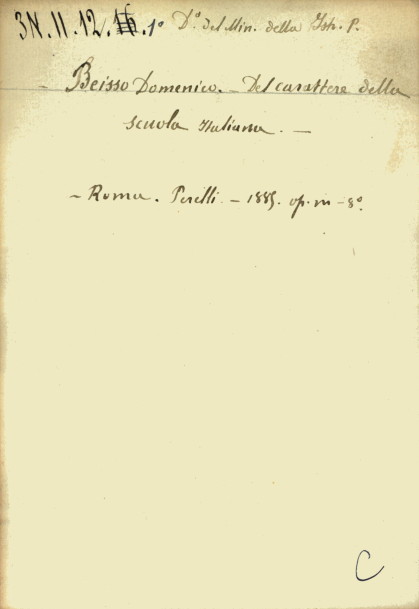 3N.11.12.16.1° D.° del Min. della Istr. P.
- Beisso Domenico. - Del carattere della
scuola Italiana. -
- Roma. Perelli - 1885. op. in - 8°.
C